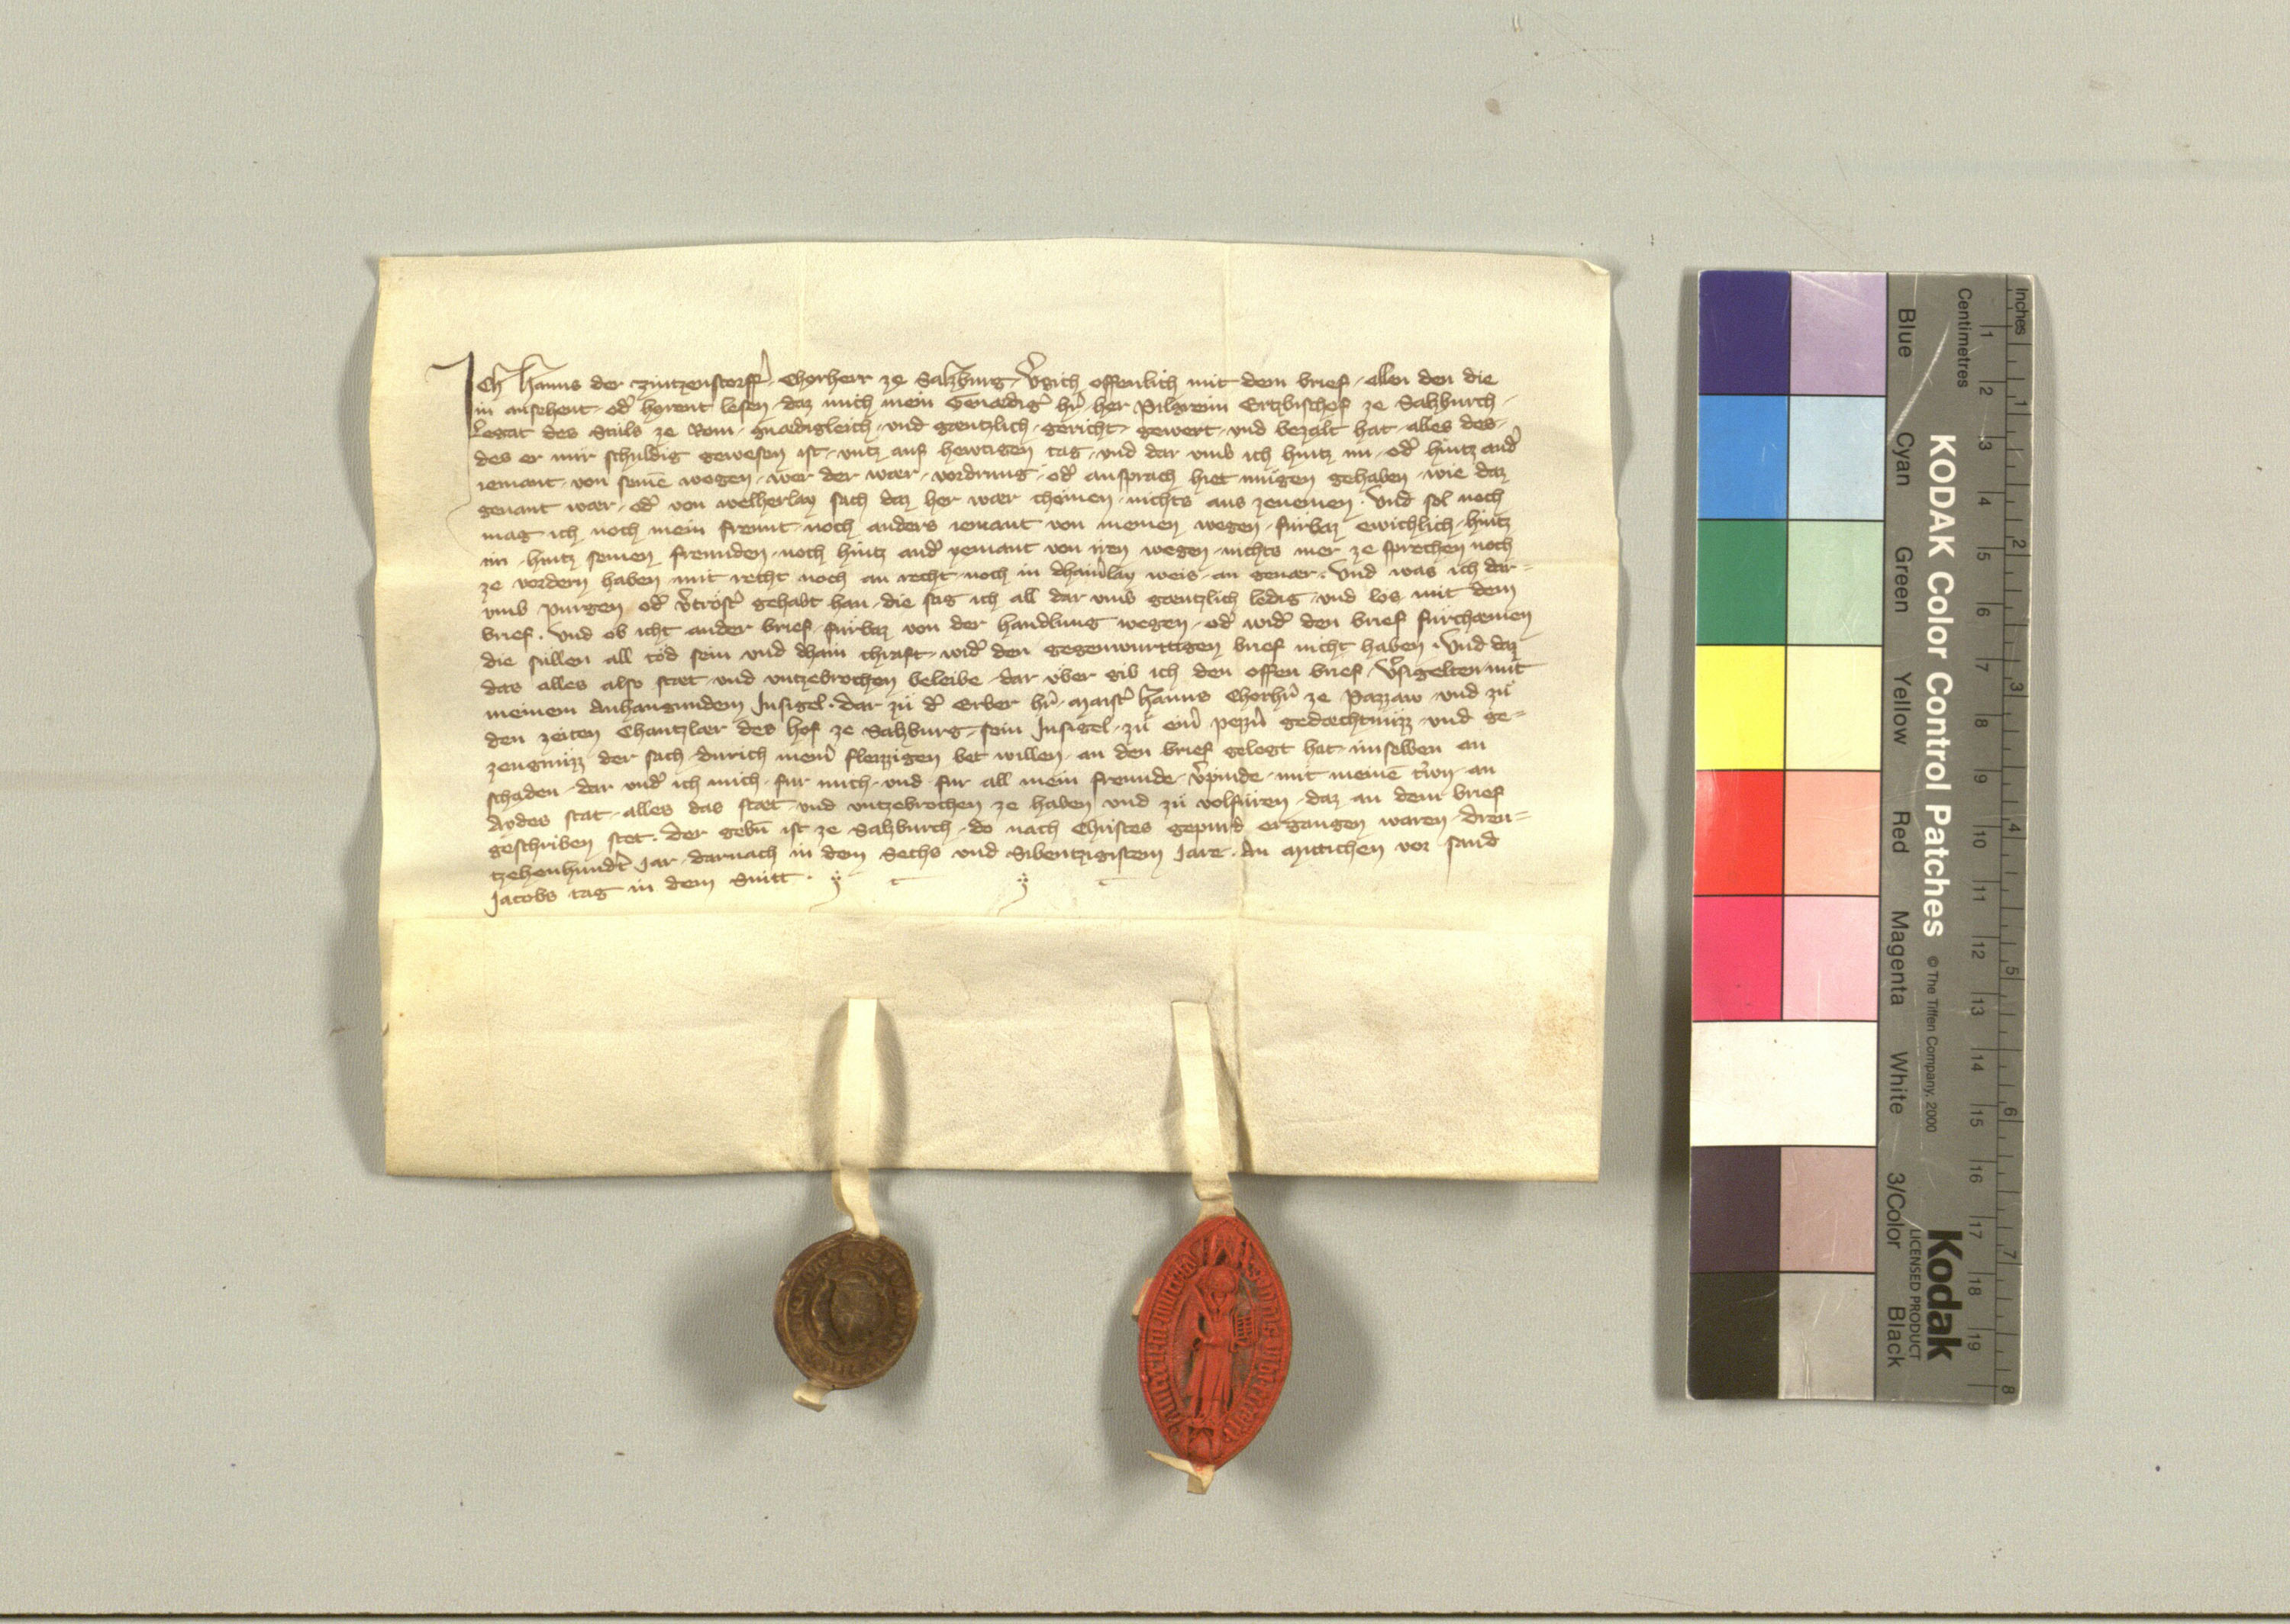 Ich Hanns der Zintzenstorff̉ Chorherr ze Salzburg, v̉gich offenlich mit dem brief, allen den die
in ansehent, od̉ horent lesen, daz mich mein Genaedig̉ hr̉, her Pilgreim Ertzbischof ze Salzburch,
Legat des Stuls ze Rom, gnaedigleich, und gaentzlich, gericht, gewert, und bezalt hat, alles des,
des er mir schuldig gewesen ist, untz auf hewtigen tag, und dar umb ich hintz im, od̉ hintz and̉
iemant, von seinē wegen, wer der waer, vordrung, od̉ ansprach hiet mugen gehaben, wie daz
genant waer, od̉ von welherlay sach daz her waer chomen, nichts aus zenemen. Und sol noch
mag ich noch mein freunt, noch anders iemant von meinen wegen, furbaz ewichlich, hintz
im, hintz seinen freunden, noch hintz and̉ yemant von iren wegen, nichts mer ze sprechen noch
ze vordern haben, mit recht noch an recht, noch in dhainl̉ay weis, an geuaer. Und was ich dar=
umb purgen, od̉ v̉trost̉ gehabt han, die sag ich all dar umb gaentzlich ledig, und los, mit dem
brief. Und ob icht ander brief, furbaz von der handlung wegen, od̉ wid̉ den brief furchaemen
die sullen all tod sein und dhain chraft, wid̉ den gegenwurttigen brief nicht haben. Und daz
das alles also staet, und untzebrochen beleibe, dar uber gib ich den offen brief, v̉sigelten mit
meinem anhangundem Insigel. Dar zu d̉ Erber hr̉, Maist̉ Hanns Chorhr̉ ze Pazzaw, und zu
den zeiten Chantzlaer des hof ze Salzburg, sein Insigel, zu ein̉ pezzr̉n gedaechtnuzz, und ge=
zeugnuzz der sach, durich mein̉ fleizzigen bet willen, an den brief gelegt hat, im selben an
schaden, dar und̉ ich mich, fur mich, und fur all mein freunde, v̉pinde, mit meinē tr̉wn, an
Aydes stat, alles das staet, und untzebrochen ze haben und zu volfuren, daz an dem brief
geschriben stet. Der gebn̄ ist ze Salzburch, do nach Christes gepurd ergangen waren, dreu=
tzehenhund̉t Jar, darnach in dem Sechs und Sibentzigistem Jare. An Mittichen vor sand
Jacobs tag in dem Snitt.
KODAK Color Control Patches
© The Tiffen Company, 2000
Kodak
LICENSED PRODUCT
Inches 1 2 3 4 5 6 7 8
Centimetres 1 2 3 4 5 6 7 8 9 10 11 12 13 14 15 16 17 18 19
Blue Cyan Green Yellow Red Magenta White 3/Color Black